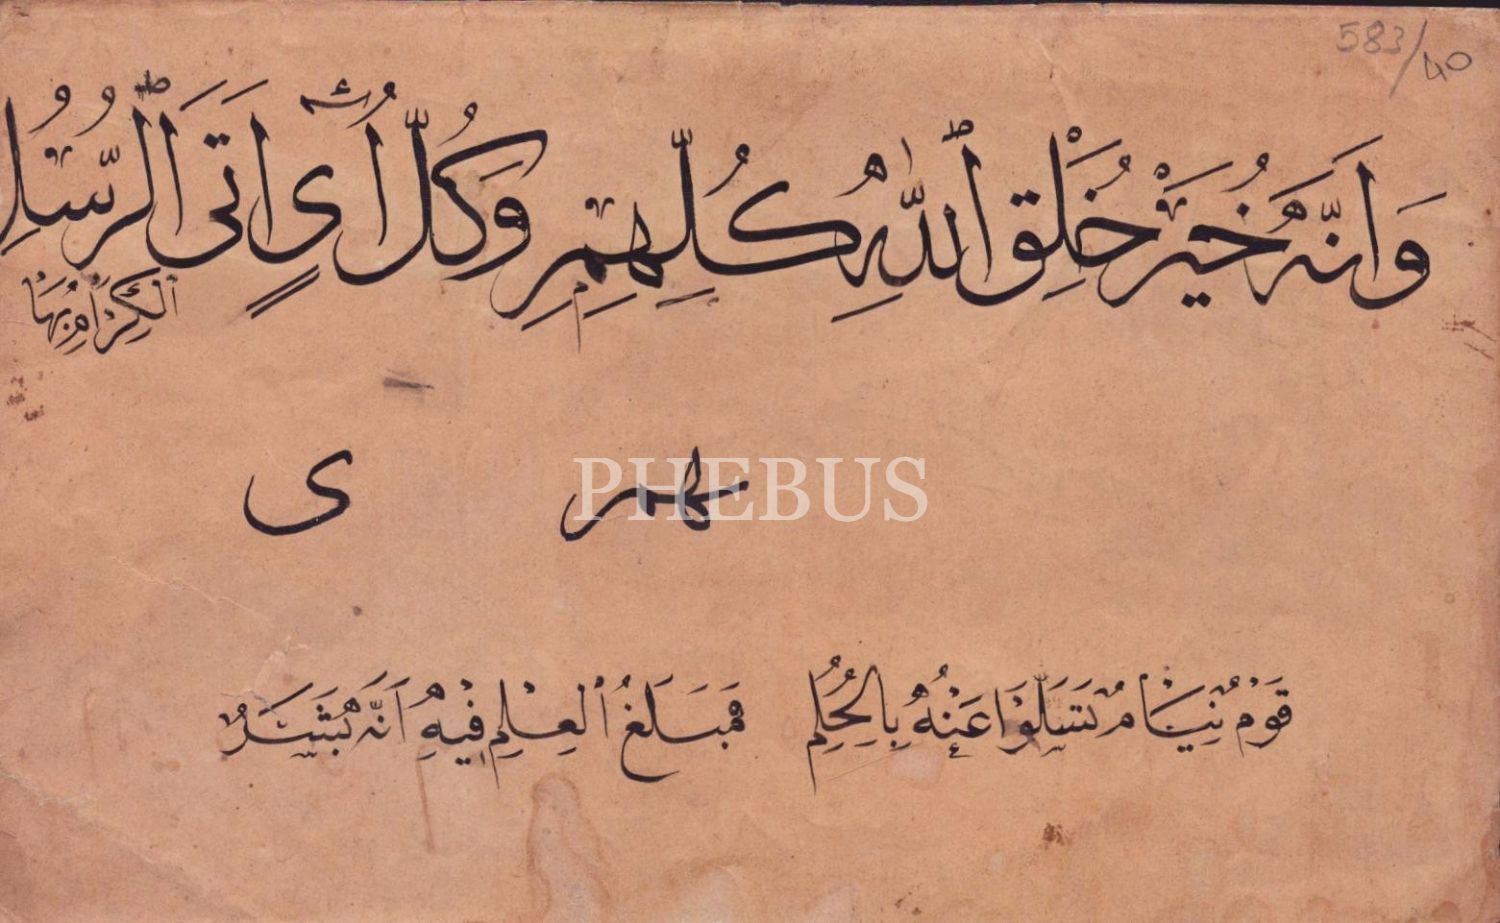 583/40
وَاَنَّهُ خَيْرُ خَلْقِ ٱللّٰهِ كُلِّهِمِ وَكُلُّ اٰىٍ اَتَى ٱلرُّسْلُ
ٱلْكِرَامُ بِهَا
PHEBUS
لهم ى
قَوْمٌ نِيَامٌ تَسَلَّوْا عَنْهُ بِالْحُلُمِ فَمَبْلَغُ ٱلْعِلْمِ فِيهِ اَنَّهُ بَشَرٌ